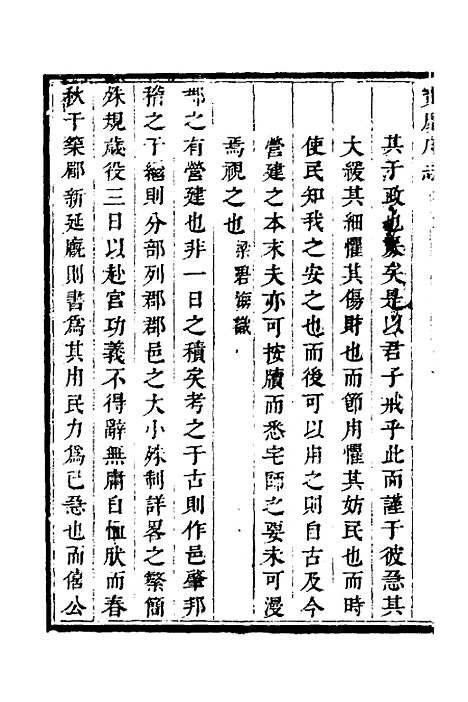 其于政也 矣是以君子戒乎此而謹于彼急其
大緩其細懼其傷財也而節用懼其妨民也而時
使民知我之安之也而後可以用之則自古及今
營建之本末夫亦可按牘而悉宅師之要未可漫
焉視之也梁碧海識
郡之有營建也非一日之積矣考之于古則作邑肇邦
稽之于經則分部列郡郡邑之大小殊制詳畧之繁簡
殊規歲役三日以赴官功義不得辭無庸自恤狀而春
秋于築郿新延廄則書爲其用民力爲已急也而僖公